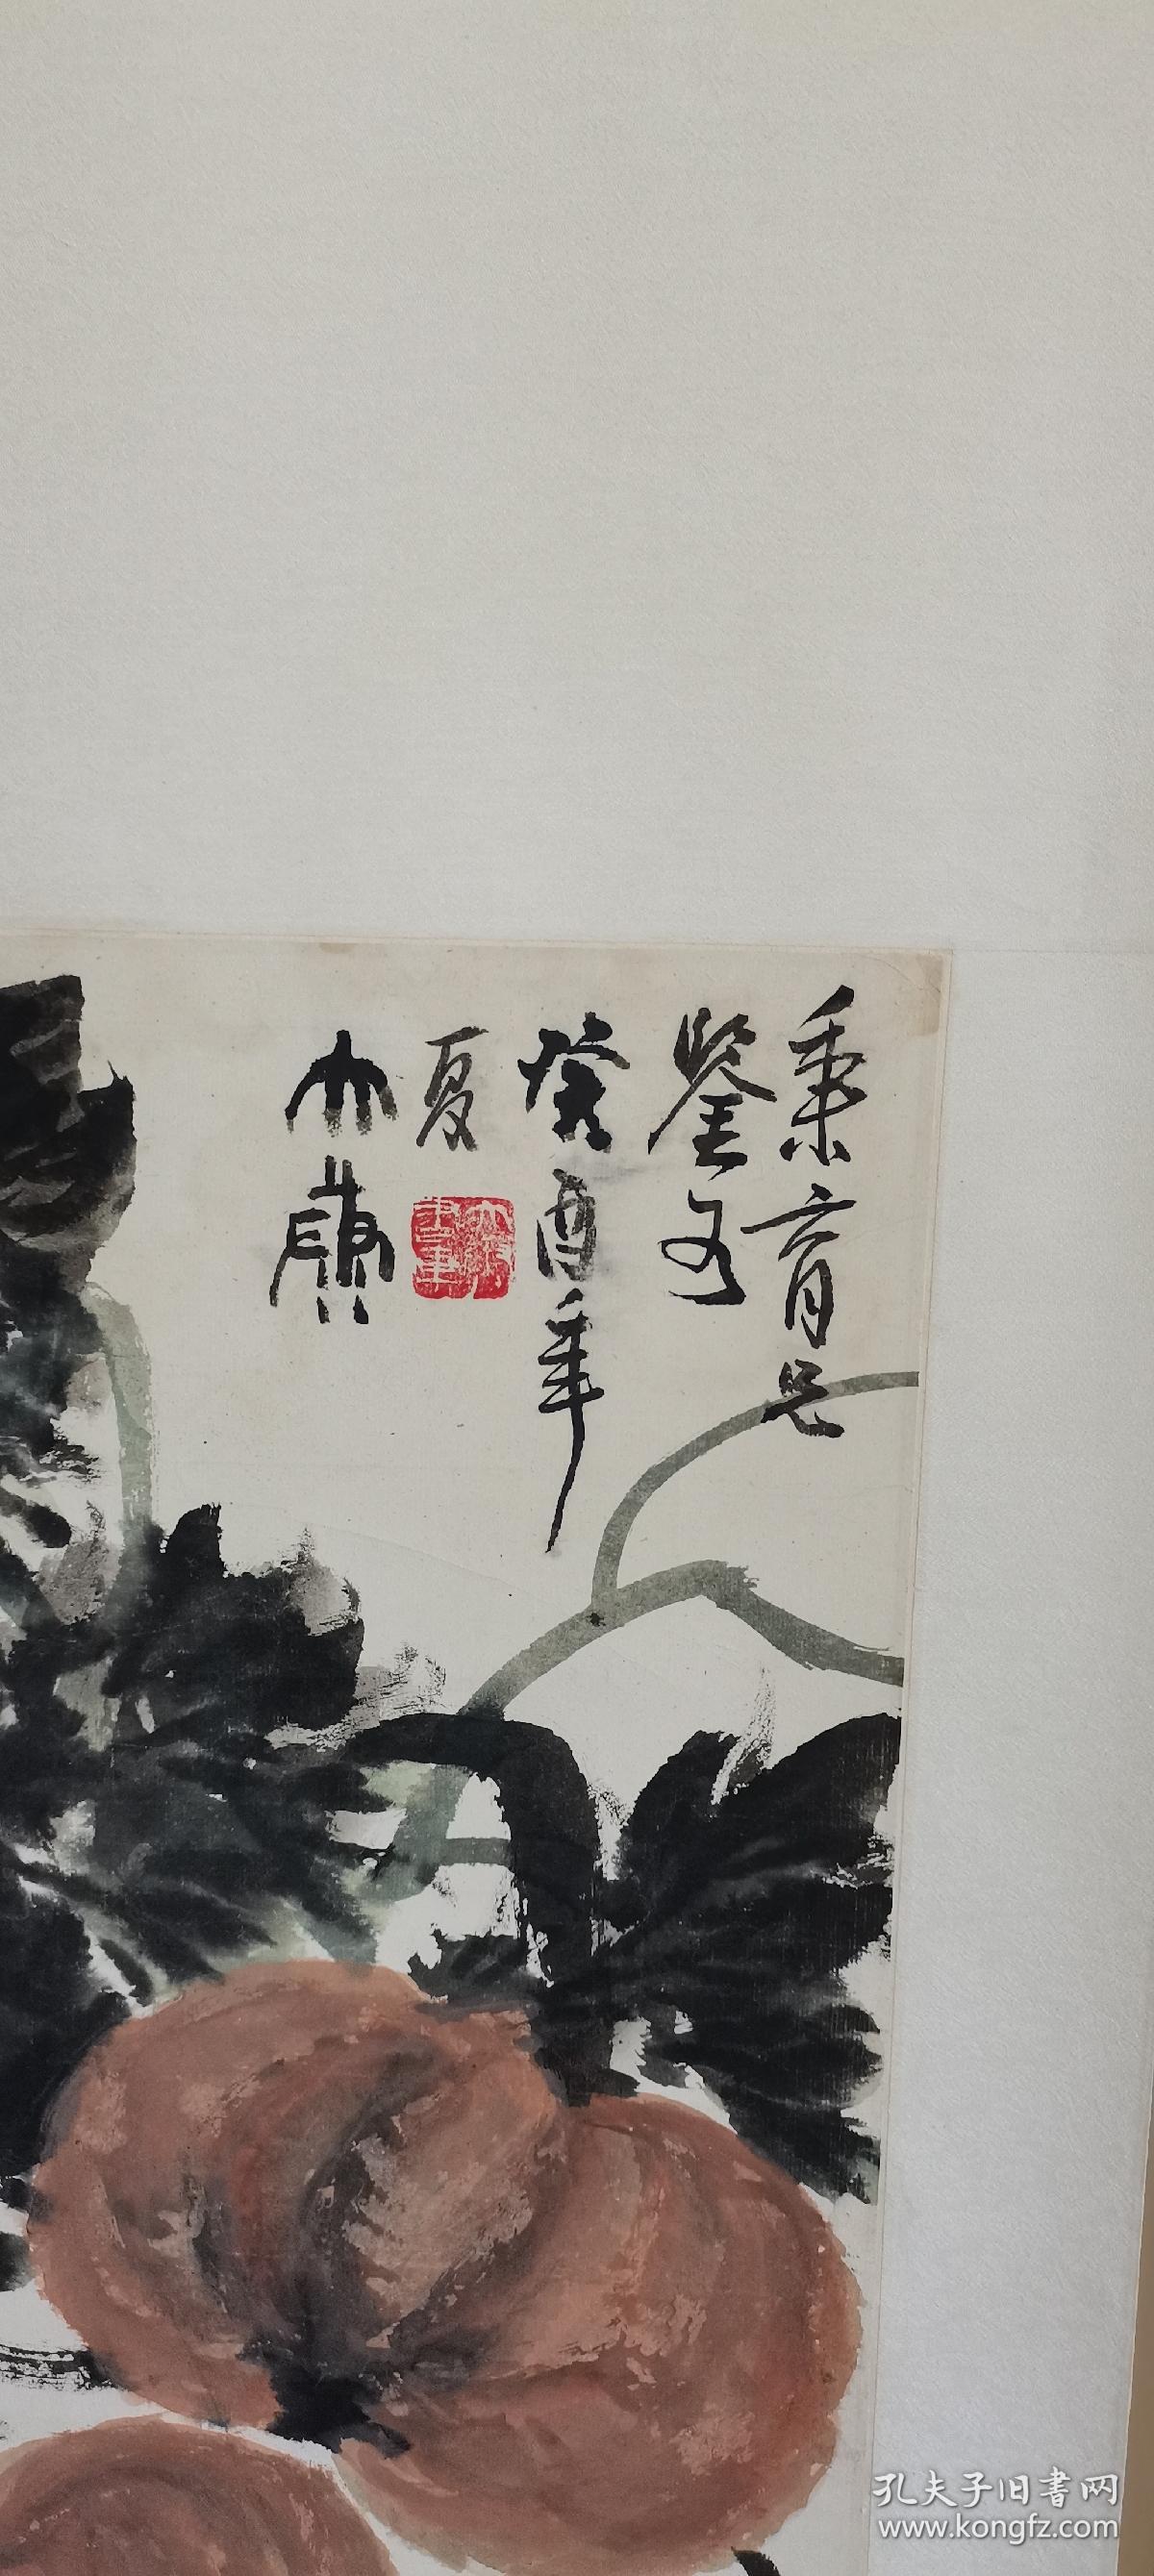 秉育兄
鑒存
癸酉年
夏
大康
孔夫子旧書网
www.kongfz.com